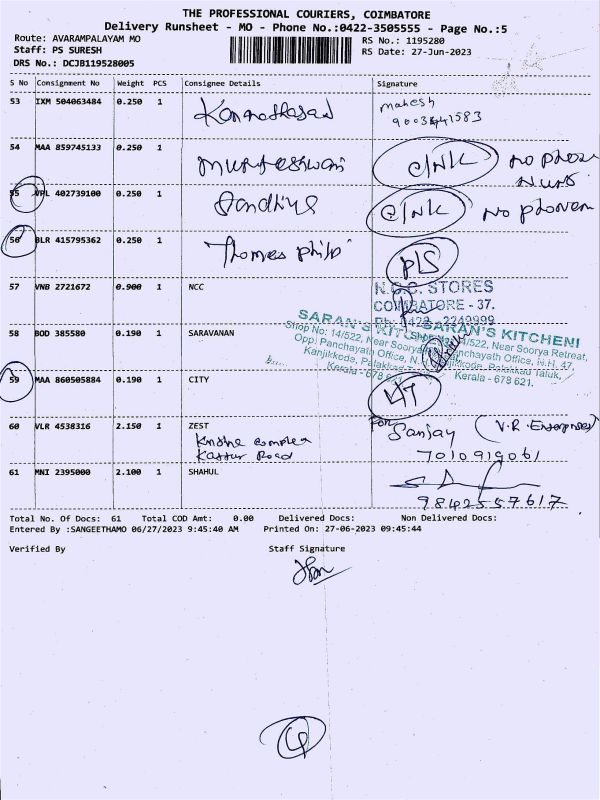 THE PROFESSIONAL COURIERS, COIMBATORE
Delivery Runsheet - MO - Phone No.:0422-3505555 - Page No.:5
Route: AVARAMPALAYAM MO
Staff: PS SURESH
DRS No.: DCJB119528005
RS No.: 1195280
RS Date: 27-Jun-2023
S No Consignment No Weight PCS Consignee Details Signature
53 IXM 504063484 0.250 1 mahesh
54 MAA 859745133 0.250 1 C/NK No phone
55 VPL 402739100 0.250 1 Sandhiya C/NK No phonem
56 BLR 415795362 0.250 1 Thomas Philip PLS
57 VNB 2721672 0.900 1 NCC
N.C.C. STORES
COIMBATORE - 37.
Ph: 0422 - 2249999
58 BOD 385580 0.190 1 SARAVANAN
SARAN'S KITCHENI
Shop No: 14/522, Near Soorya Retreat,
Opp: Panchayath Office, N.H. 47,
Kanjikkode, Palakkad Taluk,
Kerala - 678 621.
59 MAA 860505884 0.190 1 CITY
60 VLR 4538316 2.150 1 ZEST For Sanjay (V.R. Enterprises)
Kattur Road 7010919061
61 MNI 2395000 2.100 1 SHAHUL
9842557617
Total No. Of Docs: 61 Total COD Amt: 0.00 Delivered Docs: Non Delivered Docs:
Entered By :SANGEETHAMO 06/27/2023 9:45:40 AM Printed On: 27-06-2023 09:45:44
Verified By Staff Signature